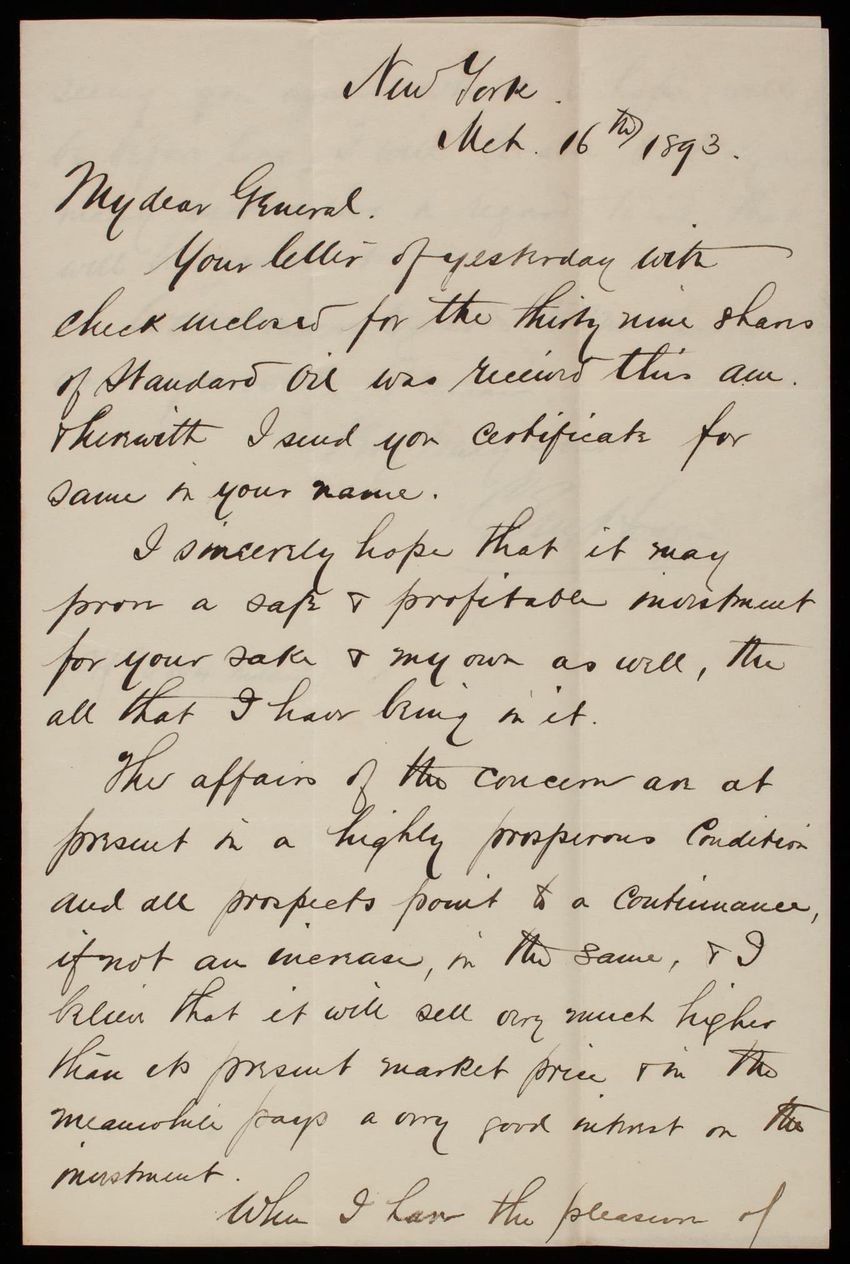 New York.
Mch. 16th 1893.
My dear General.
Your letter of yesterday with
check inclosed for the thirty nine shares
of Standard Oil was received this am.
& herewith I send you certificate for
same in your name.
I sincerely hope that it may
prove a safe & profitable investment
for your sake & my own as well, the
all that I have being in it.
The affairs of the concern are at
present in a highly prosperous condition
and all prospects point to a continuance,
if not an increase, in the same, & I
believe that it will sell very much higher
than its present market price & in the
meanwhile pays a very good interest on the
investment.
When I have the pleasure of